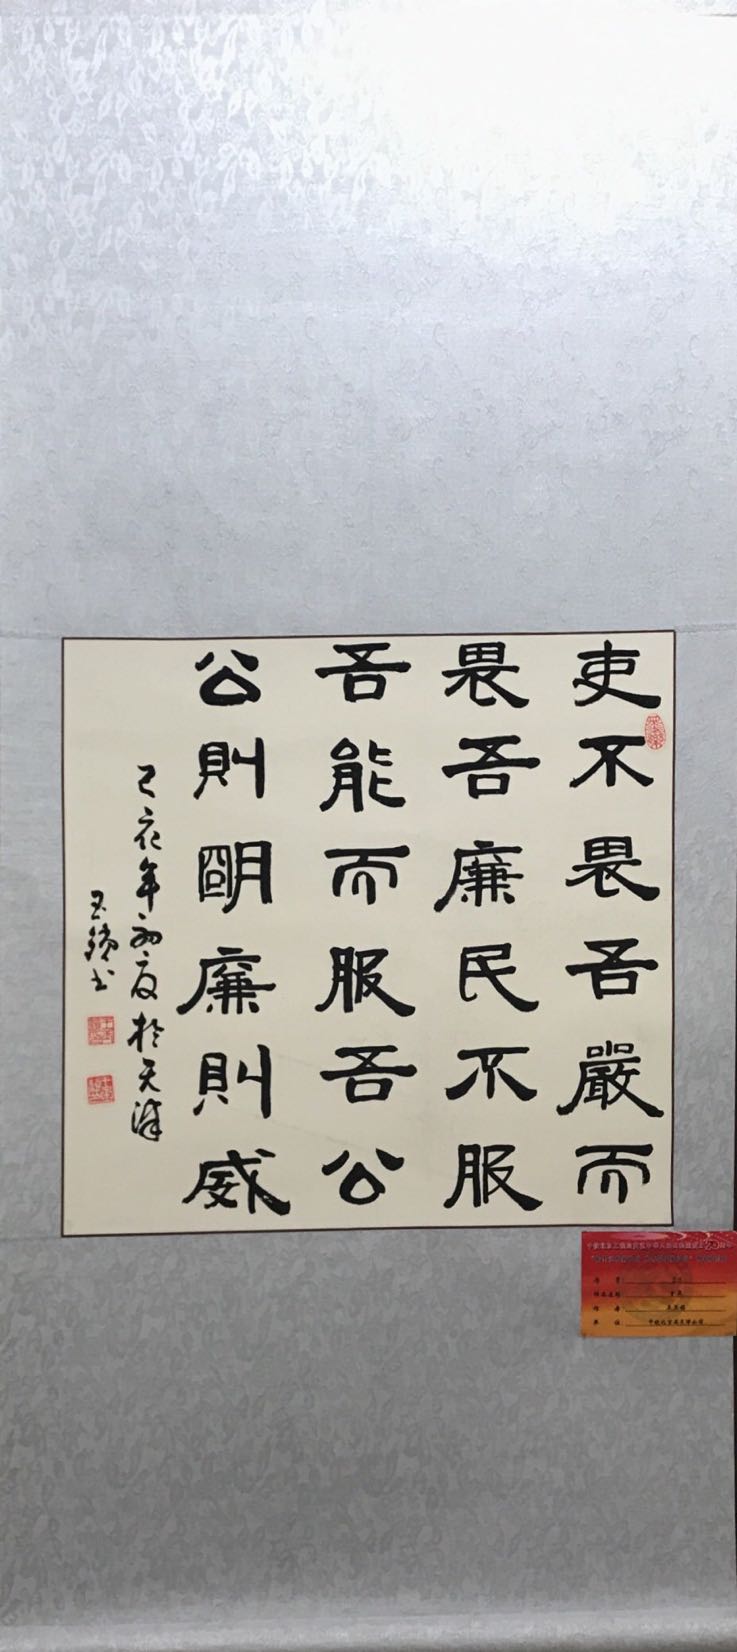 吏不畏吾嚴而
畏吾廉民不服
吾能而服吾公
公則明廉則威
己亥年初夏於天津
玉鎖書